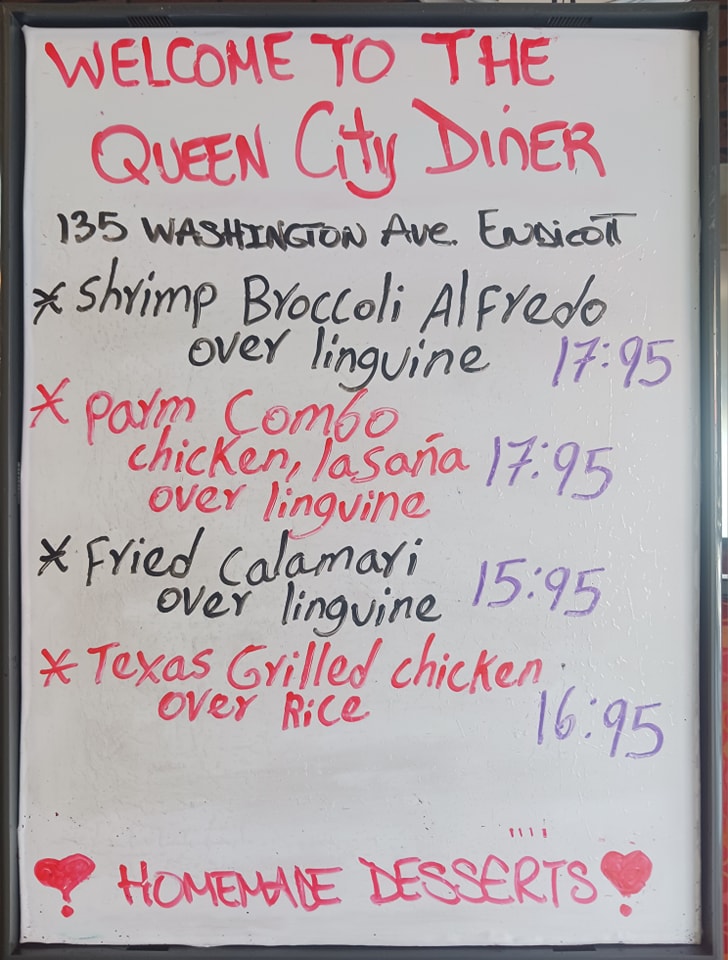 WELCOME TO THE
QUEEN City DiNER
135 WASHINGTON Ave. ENDICOTT
* Shrimp Broccoli Alfredo
over linguine 17:95
* Parm Combo
chicken, lasaña 17:95
over linguine
* Fried Calamari
over linguine 15:95
* Texas Grilled chicken
over Rice 16:95
HOMEMADE DESSERTS